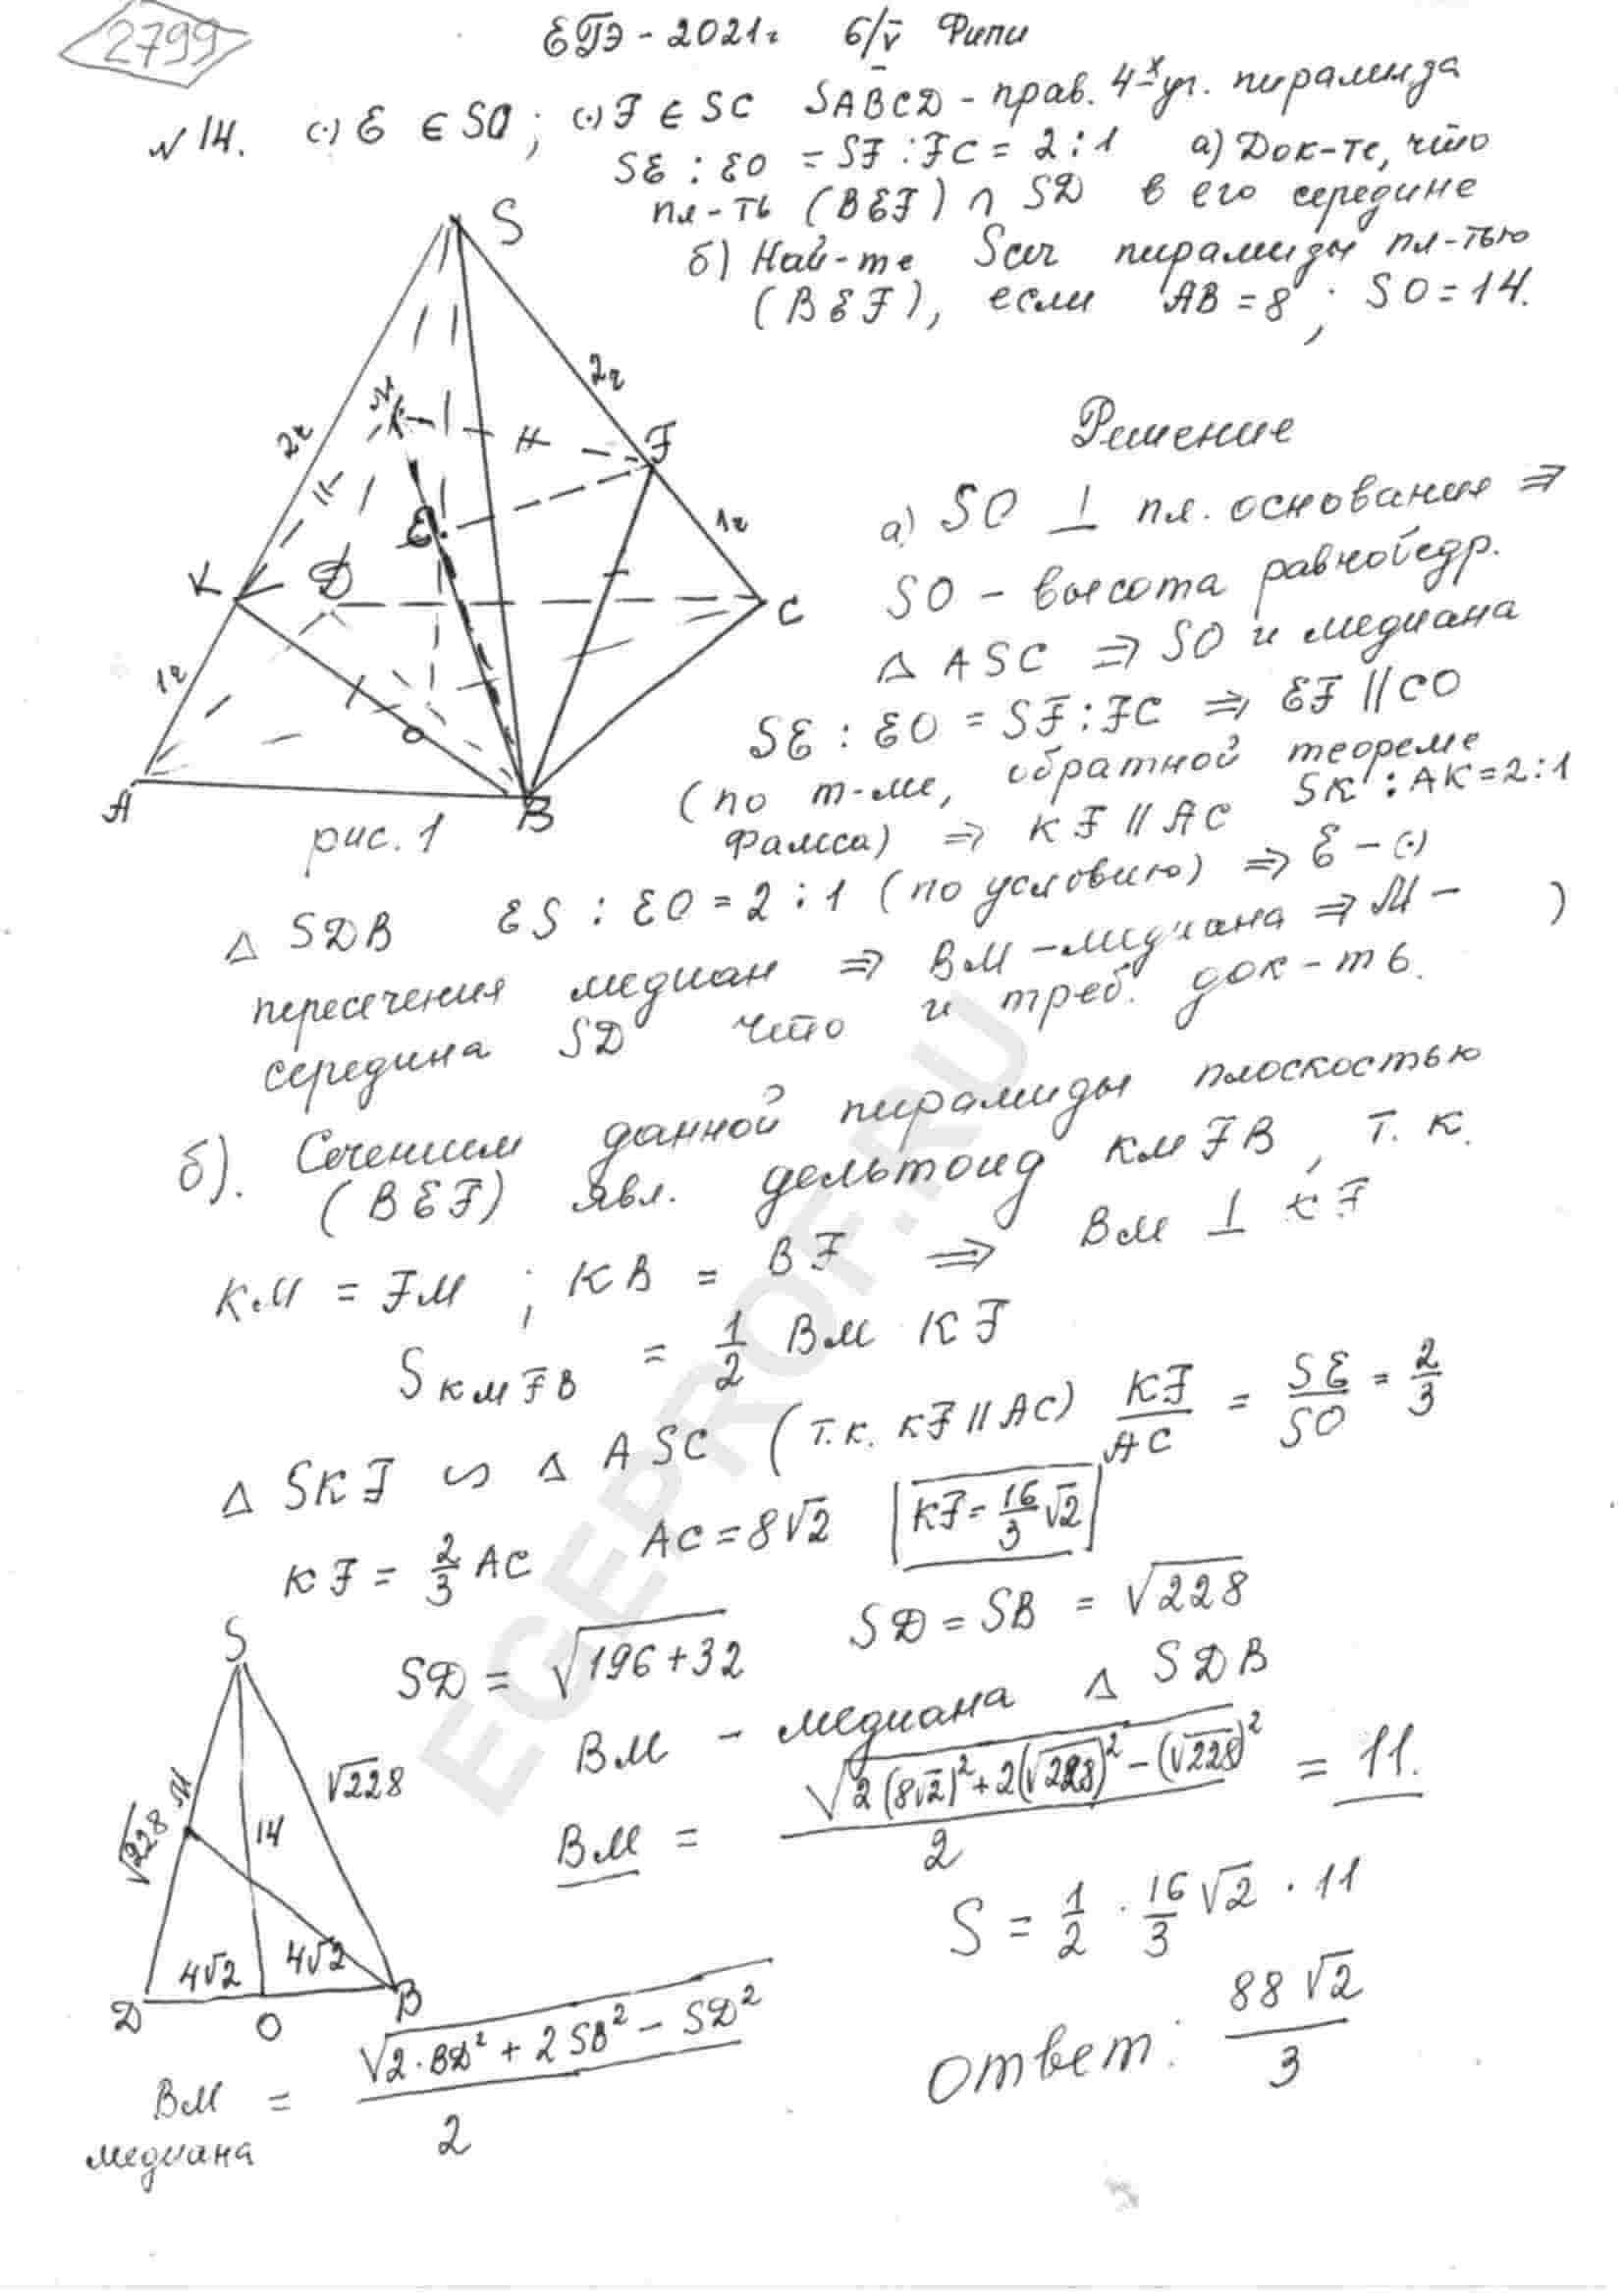 2799
ЕГЭ - 2021г 6/V Фипи
N 14. (·) E ∈ SO ; (·) F ∈ SC SABCD - прав. 4-х уг. пирамида
SE : EO = SF : FC = 2 : 1 а) Док-те, что
пл-ть (BEF) ∩ SD в его середине
б) Най-те Sсеч пирамиды пл-тью
(BEF), если AB = 8 ; SO = 14.
S
2ч
2ч
M
F
E
1ч
K
D
C
1ч
O
A
B
рис. 1
Решение
а) SO ⊥ пл. основания ⇒
SO - высота равнобедр.
△ ASC ⇒ SO и медиана
SE : EO = SF : FC ⇒ EF || CO
(по т-ме, обратной теореме
Фалеса) ⇒ KF || AC SK : AK = 2 : 1
△ SDB ES : EO = 2 : 1 (по условию) ⇒ E - (·)
пересечения медиан ⇒ BM - медиана ⇒ M -
середина SD что и треб. док-ть.
б). Сечением данной пирамиды плоскостью
(BEF) явл. дельтоид KMFB, т.к.
KM = FM ; KB = BF ⇒ BM ⊥ KF
S KMFB = 1/2 BM KF
△ SKF ∽ △ ASC (т.к. KF || AC) KF/AC = SE/SO = 2/3
KF = 2/3 AC AC = 8√2 KF = 16/3 √2
SD = √196+32 SD = SB = √228
BM - медиана △ SDB
BM = √2(8√2)² + 2(√228)² - (√228)² / 2 = 11.
S = 1/2 · 16/3 √2 · 11
S
√228
M
√228
14
4√2
4√2
D
O
B
BM = √2·BD² + 2SB² - SD² / 2
медиана
Ответ: 88√2 / 3
EGEPROF.RU